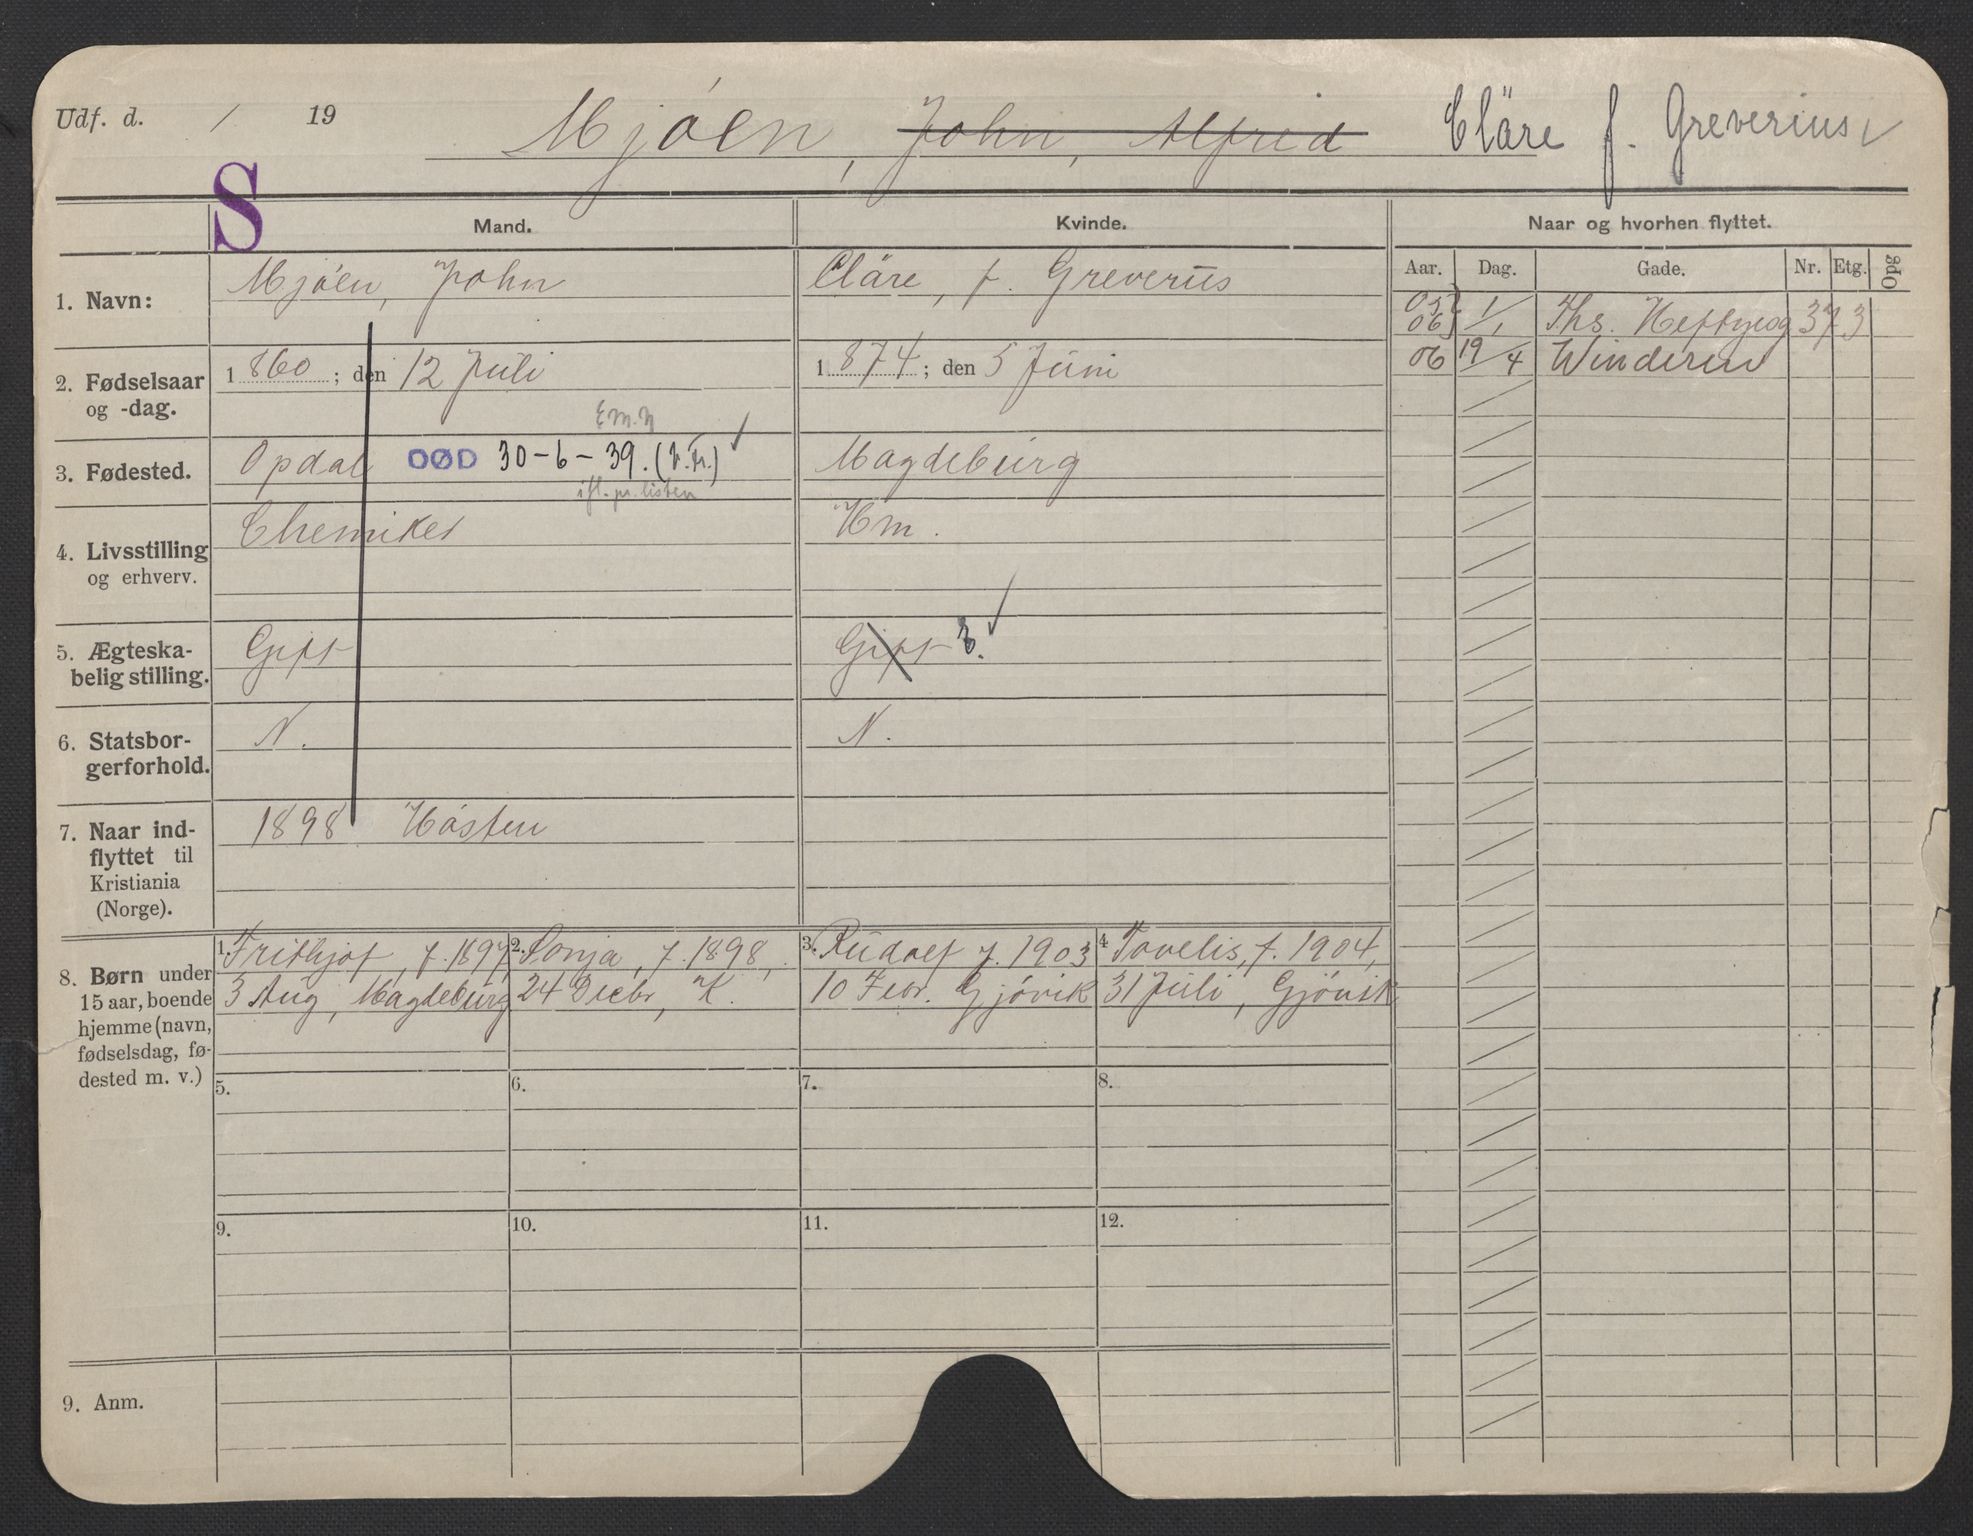 Udf. d. / 19 Mjöen, John, Alfred Cläre f. Greverius
S
Mand. Kvinde. Naar og hvorhen flyttet.
Aar. Dag. Gade. Nr. Etg. Opg
1. Navn: Mjöen, John Cläre, f. Greverüs
05 06 1/1 Ths. Heftyesg 37 3
2. Fødselsaar og -dag. 1860; den 12 Júli 1874; den 5 Júni
06 19/4 Winderen
E m. N
3. Fødested. Opdal DØD 30-6-39. Magdebúrg
ifl. pr. listen
4. Livsstilling og erhverv. Chemiker Hm.
5. Ægteska-
belig stilling. Gift Gift E.
6. Statsbor-
gerforhold. N. N.
7. Naar ind-
flyttet til
Kristiania
(Norge).
1898 Hösten
8. Børn under
15 aar, boende
hjemme (navn,
fødselsdag, fø-
dested m. v.)
1. Frithjof, f. 1897
3 Aug, Magdebúrg
2. Sonja, f. 1898,
24 Decbr, K.
3. Rúdolf f. 1903
10 Febr. Gjövik
4 Tovelis, f. 1904,
31 Júli, Gjövik
5. 6. 7. 8.
9. 10. 11. 12.
9. Anm.